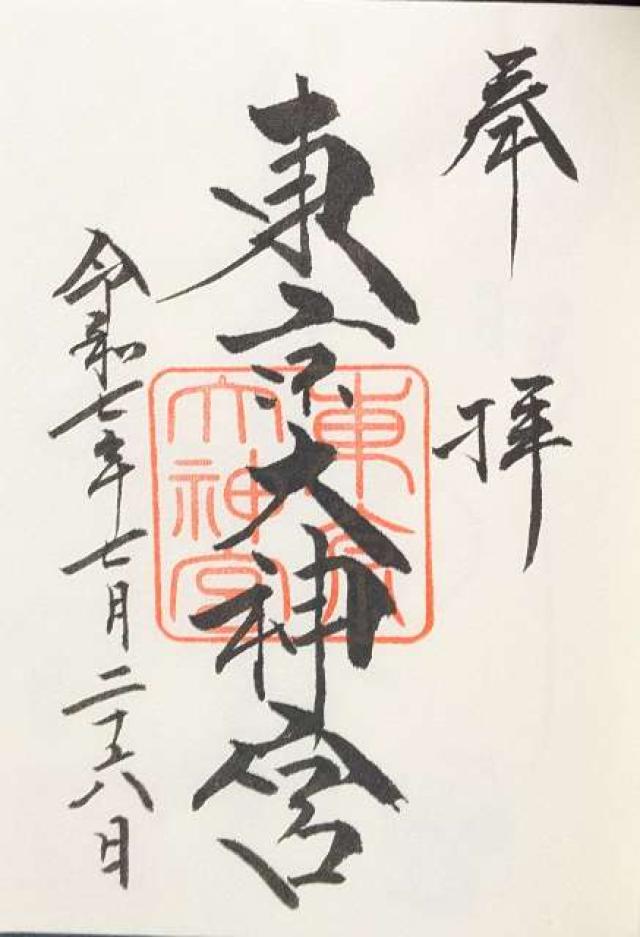 奉拝
東京大神宮
東京大神宮
令和七年七月二十八日